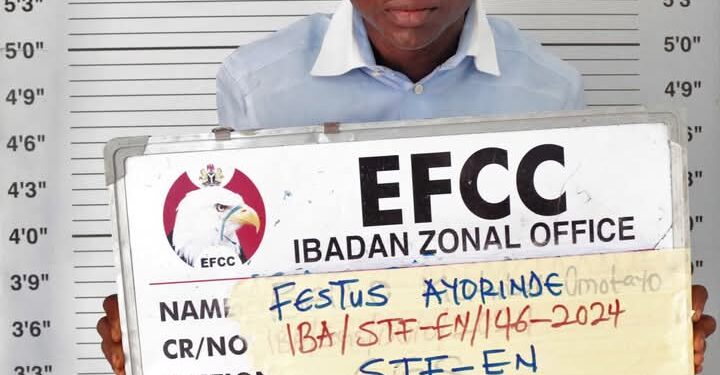 5'3" 5'3
5'0" 5'0"
4'9" 4'9"
4'6"
4'3"
4'0"
3'9"
3'6"
3'3"
EFCC
IBADAN ZONAL OFFICE
EFCC
NAME FESTUS AYORINDE Omotayo
CR/NO IBA/STF-EN/146-2024
STF-EN